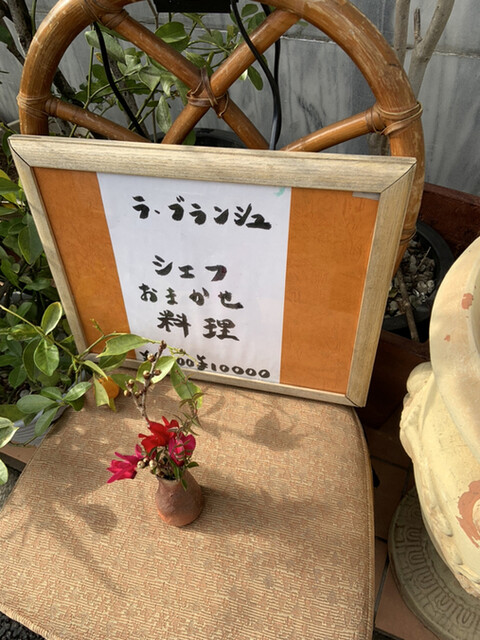 ラ・ブランシュ
シェフ
おまかせ
料理
¥10000